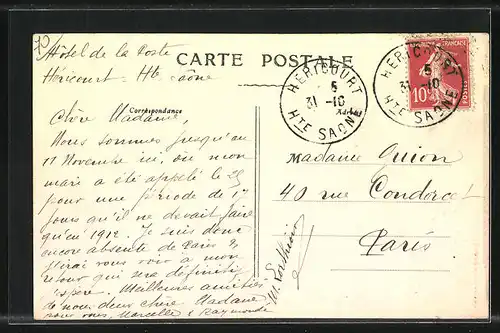 Hôtel de la Poste
Héricourt - Hte Saône
CARTE POSTALE
Correspondance
HÉRICOURT
5
31 -10
HTE SAONE
HÉRICOURT
5
31 10
HTE SAONE
RÉPUBLIQUE FRANÇAISE
10c
POSTES
Chère Madame,
Nous sommes jusqu'au
11 Novembre ici, où mon
mari a été appelé le 25
pour une période de 17
jours qu'il ne devait faire
qu'en 1912. Je suis donc
encore absente de Paris &
j'irai vous voir à mon
retour qui sera définitif
j'espère. Meilleures amitiés
de nous deux chère Madame
Marcelle & Raymonde
Madame Guion
40 rue Condorcet
Paris